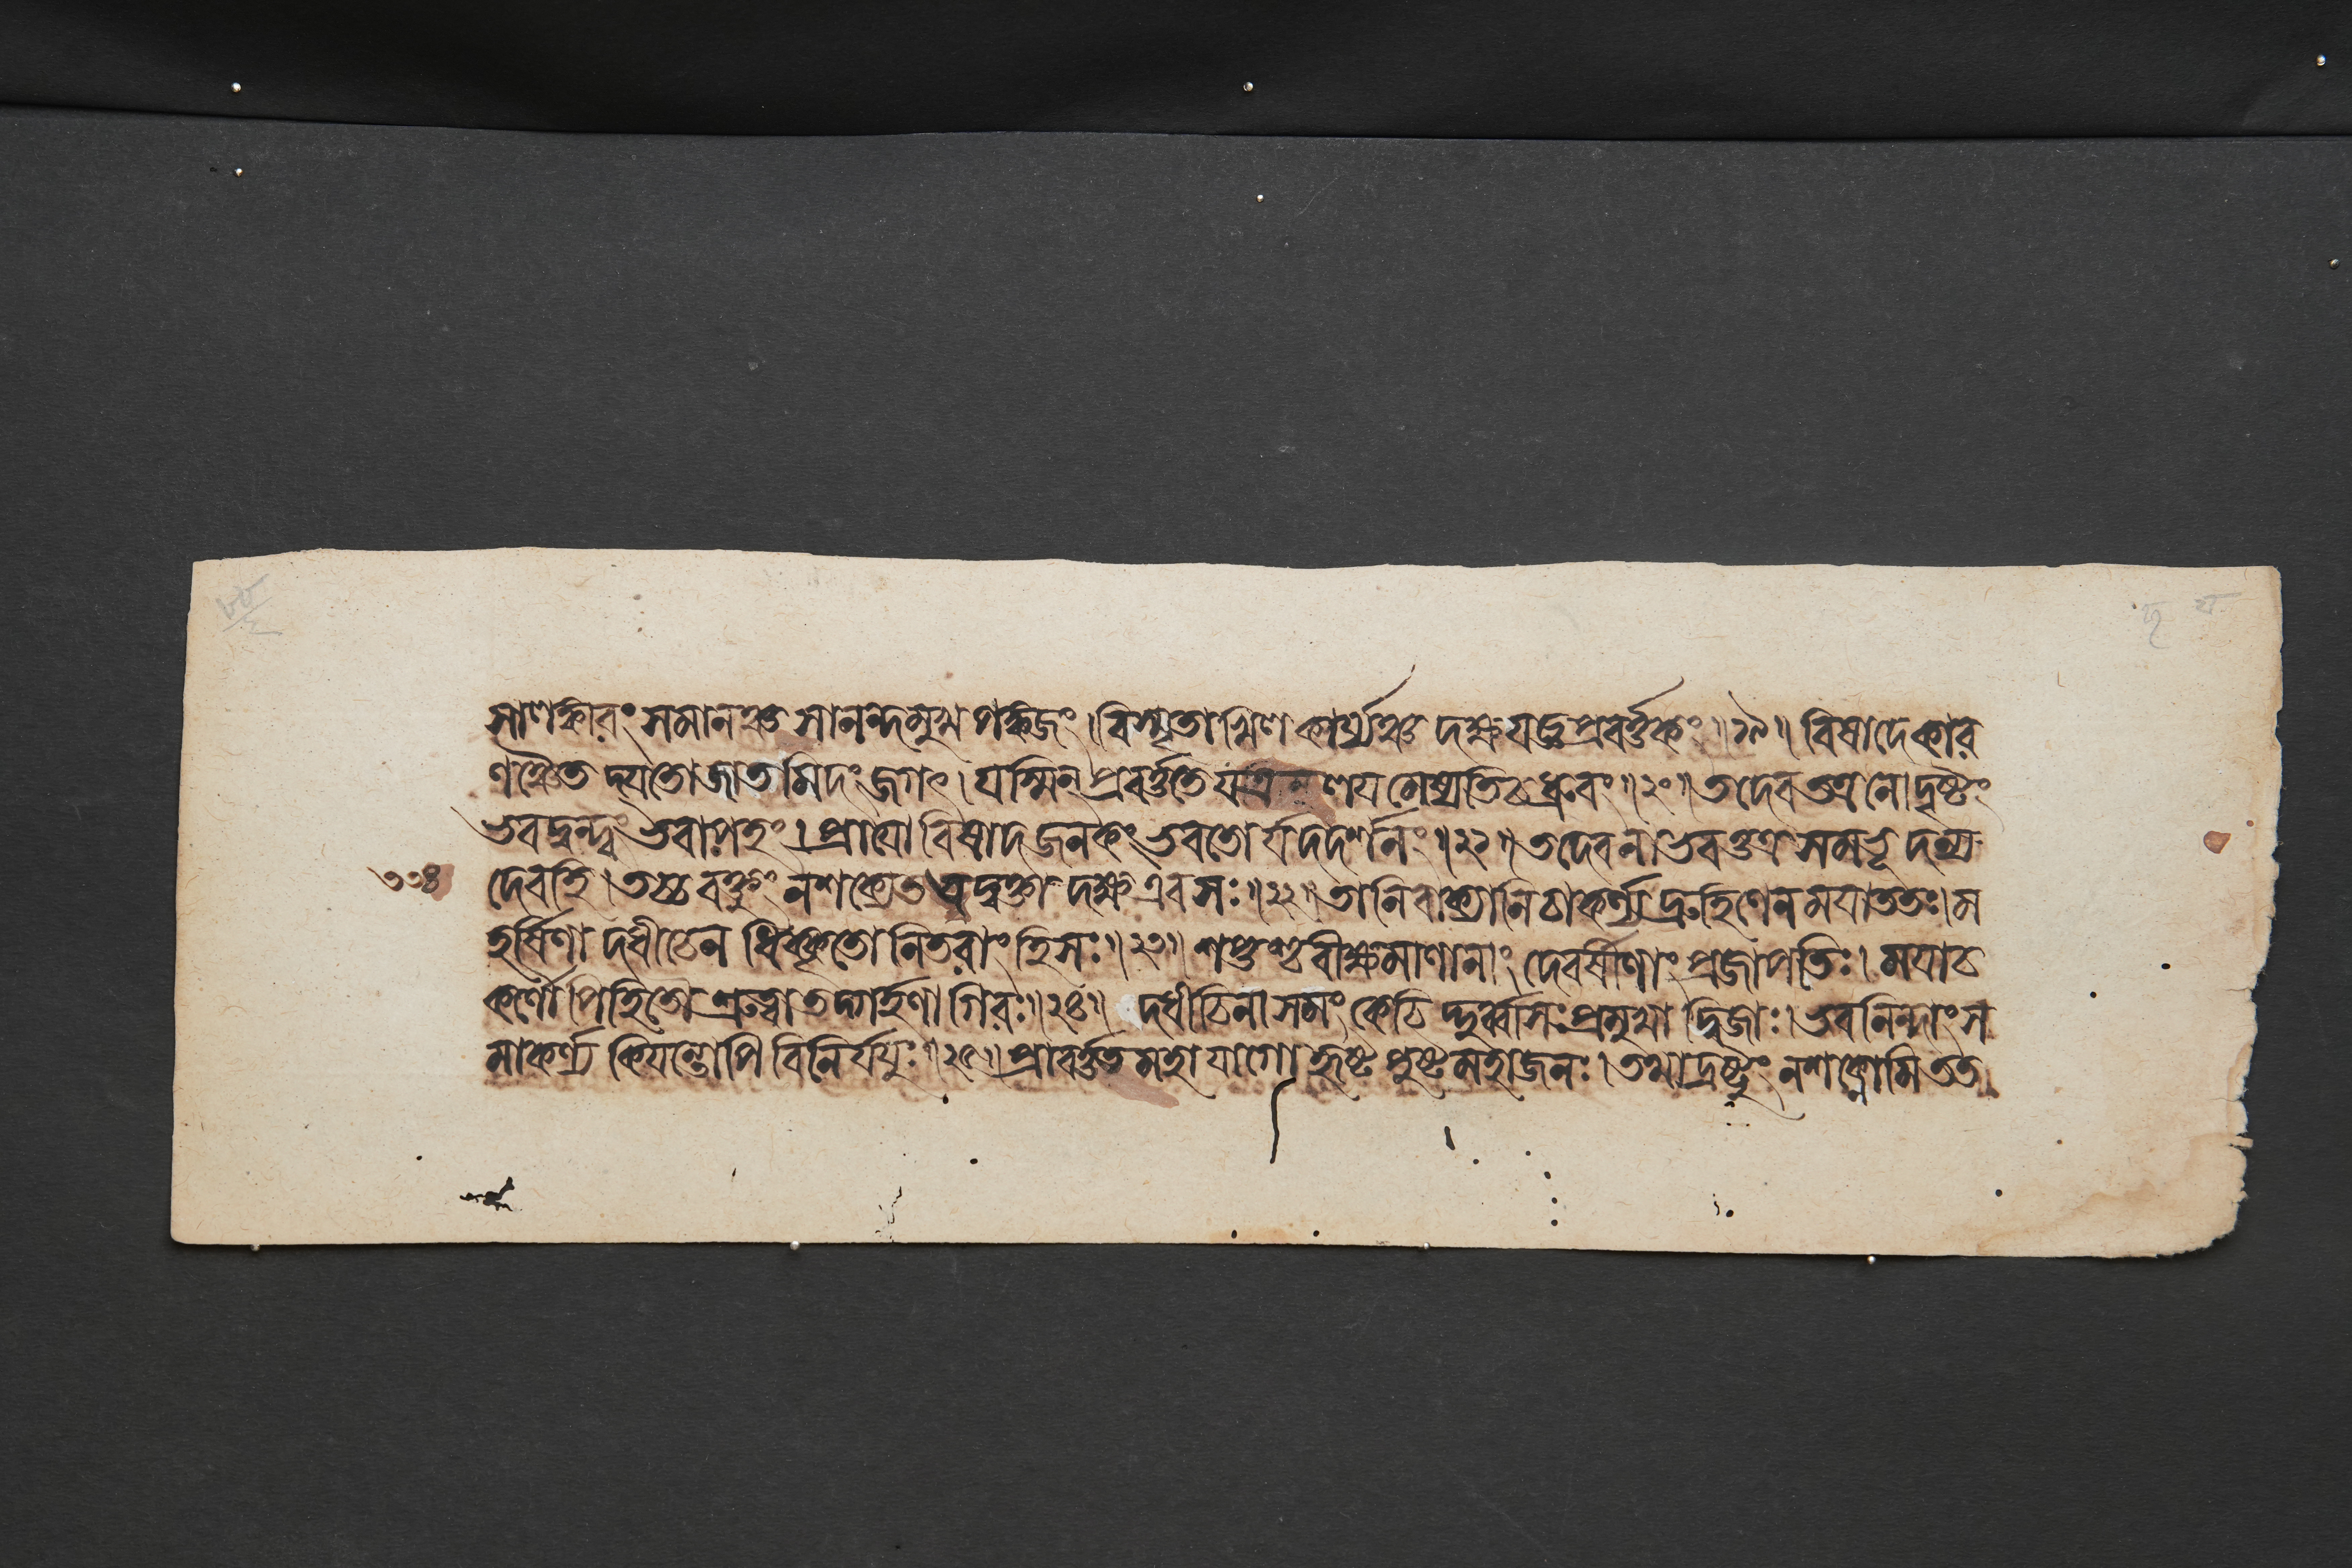 সাণঙ্কারং সমানঞ্চ সানন্দমুখ পঙ্কজং। বিস্মৃতাখিল কার্য্যঞ্চ দক্ষযজ্ঞপ্রবর্ত্তকং॥১৯॥ বিষাদে কার
ণঞ্চৈত দ্যতো জাতমিদং জগৎ। যস্মিন্ প্রবর্ত্ততে যত্র লয়মেষ্যতি চ ধ্রুবং॥২০॥ তদেব তত্র নো দৃষ্টং
ভবদ্বন্দ্বং ভবাপহং। প্রায়ো বিষাদ জনকং ভবতো র্যদদর্শনং॥২১॥ তদেব নাভবত্তত্র সমভূ দন্য
৩৩৪ দেবহি। তচ্চ বক্তুং ন শক্যেত বদ্বক্তা দক্ষ এব সঃ॥২২॥ তানি বাক্যানি চাকর্ণ্য দ্রুহিণেন ময়া ততঃ। ম
হর্ষিণা দধীচেন ধিক্কৃতো নিতরাং হি সঃ॥২৩॥ শপ্তশ্চ বীক্ষমাণানাং দেবর্ষীণাং প্রজাপতিঃ। ময়া চ
কর্ণৌ পিহিতৌ শ্রুত্বা তদ্গর্হণা গিরঃ॥২৪॥ দধীচিনা সমং কেচি দ্দুর্ব্বাসঃ প্রমুখা দ্বিজাঃ। ভবনিন্দাং স
মাকর্ণ্য কিয়ন্তোপি বিনির্যযুঃ॥২৫॥ প্রাবর্ত্তত মহা যাগো হৃষ্ট পুষ্ট মহাজনঃ। তথা দ্রষ্টুং ন শক্নোমি তত